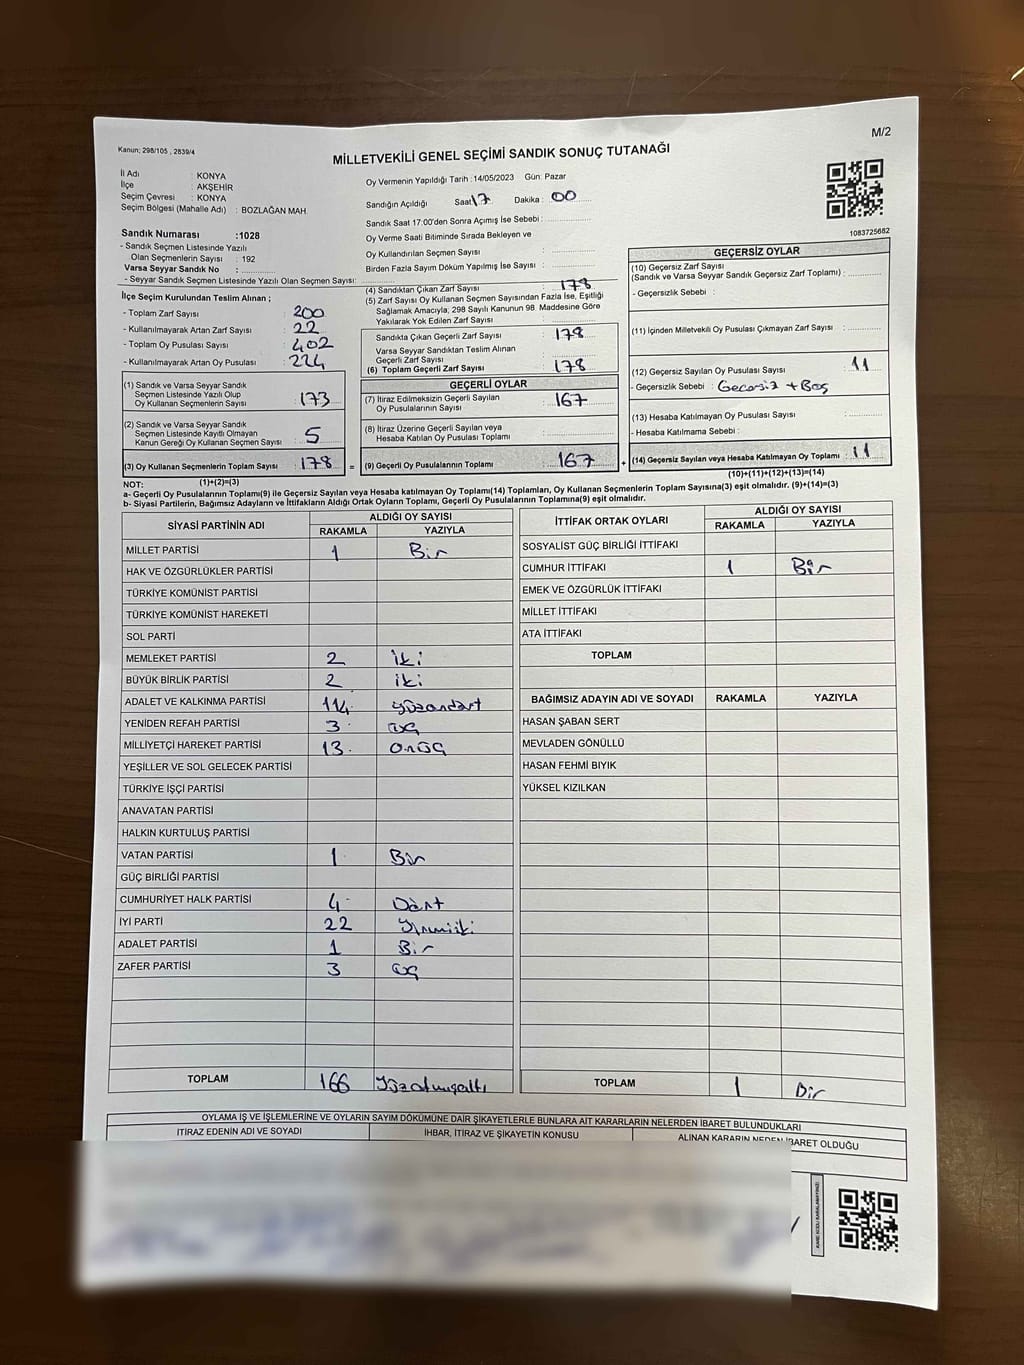 M/2
Kanun; 298/105 , 2839/4
MİLLETVEKİLİ GENEL SEÇİMİ SANDIK SONUÇ TUTANAĞI
İl Adı : KONYA
İlçe : AKŞEHİR
Seçim Çevresi : KONYA
Seçim Bölgesi (Mahalle Adı) : BOZLAĞAN MAH.
Sandık Numarası :1028
- Sandık Seçmen Listesinde Yazılı
Olan Seçmenlerin Sayısı : 192
Varsa Seyyar Sandık No :
- Seyyar Sandık Seçmen Listesinde Yazılı Olan Seçmen Sayısı:
Oy Vermenin Yapıldığı Tarih :14/05/2023 Gün: Pazar
Sandığın Açıldığı Saat: 17 Dakika : 00
Sandık Saat 17:00'den Sonra Açımış İse Sebebi :
Oy Verme Saati Bitiminde Sırada Bekleyen ve
Oy Kullandırılan Seçmen Sayısı :
Birden Fazla Sayım Döküm Yapılmış İse Sayısı :
1083725682
İlçe Seçim Kurulundan Teslim Alınan ;
- Toplam Zarf Sayısı : 200
- Kullanılmayarak Artan Zarf Sayısı : 22
- Toplam Oy Pusulası Sayısı : 402
- Kullanılmayarak Artan Oy Pusulası : 224
(1) Sandık ve Varsa Seyyar Sandık
Seçmen Listesinde Yazılı Olup
Oy Kullanan Seçmenlerin Sayısı : 173
(2) Sandık ve Varsa Seyyar Sandık
Seçmen Listesinde Kayıtlı Olmayan
Kanun Gereği Oy Kullanan Seçmen Sayısı : 5
(3) Oy Kullanan Seçmenlerin Toplam Sayısı : 178 =
(1)+(2)=(3)
(4) Sandıktan Çıkan Zarf Sayısı : 178
(5) Zarf Sayısı Oy Kullanan Seçmen Sayısından Fazla İse, Eşitliği
Sağlamak Amacıyla; 298 Sayılı Kanunun 98. Maddesine Göre
Yakılarak Yok Edilen Zarf Sayısı :
Sandıkta Çıkan Geçerli Zarf Sayısı : 178
Varsa Seyyar Sandıktan Teslim Alınan
Geçerli Zarf Sayısı :
(6) Toplam Geçerli Zarf Sayısı : 178
GEÇERLİ OYLAR
(7) İtiraz Edilmeksizin Geçerli Sayılan
Oy Pusulalarının Sayısı : 167
(8) İtiraz Üzerine Geçerli Sayılan veya
Hesaba Katılan Oy Pusulası Toplamı :
(9) Geçerli Oy Pusulalarının Toplamı : 167 +
GEÇERSİZ OYLAR
(10) Geçersiz Zarf Sayısı
(Sandık ve Varsa Seyyar Sandık Geçersiz Zarf Toplamı) :
- Geçersizlik Sebebi :
(11) İçinden Milletvekili Oy Pusulası Çıkmayan Zarf Sayısı :
(12) Geçersiz Sayılan Oy Pusulası Sayısı : 11
- Geçersizlik Sebebi : Gecersiz + Boş
(13) Hesaba Katılmayan Oy Pusulası Sayısı :
- Hesaba Katılmama Sebebi :
(14) Geçersiz Sayılan veya Hesaba Katılmayan Oy Toplamı : 11
(10)+(11)+(12)+(13)=(14)
NOT:
a- Geçerli Oy Pusulalarının Toplamı(9) ile Geçersiz Sayılan veya Hesaba katılmayan Oy Toplamı(14) Toplamları, Oy Kullanan Seçmenlerin Toplam Sayısına(3) eşit olmalıdır. (9)+(14)=(3)
b- Siyasi Partilerin, Bağımsız Adayların ve İttifakların Aldığı Ortak Oyların Toplamı, Geçerli Oy Pusulalarının Toplamına(9) eşit olmalıdır.
SİYASİ PARTİNİN ADI ALDIĞI OY SAYISI
RAKAMLA YAZIYLA
MİLLET PARTİSİ 1 Bir
HAK VE ÖZGÜRLÜKLER PARTİSİ
TÜRKİYE KOMÜNİST PARTİSİ
TÜRKİYE KOMÜNİST HAREKETİ
SOL PARTİ
MEMLEKET PARTİSİ 2 iki
BÜYÜK BİRLİK PARTİSİ 2 iki
ADALET VE KALKINMA PARTİSİ 114 yüzondört
YENİDEN REFAH PARTİSİ 3 üç
MİLLİYETÇİ HAREKET PARTİSİ 13 onüç
YEŞİLLER VE SOL GELECEK PARTİSİ
TÜRKİYE İŞÇİ PARTİSİ
ANAVATAN PARTİSİ
HALKIN KURTULUŞ PARTİSİ
VATAN PARTİSİ 1 Bir
GÜÇ BİRLİĞİ PARTİSİ
CUMHURİYET HALK PARTİSİ 4 Dört
İYİ PARTİ 22 Yirmiiki
ADALET PARTİSİ 1 Bir
ZAFER PARTİSİ 3 üç
TOPLAM 166 Yüzatmışaltı
İTTİFAK ORTAK OYLARI ALDIĞI OY SAYISI
RAKAMLA YAZIYLA
SOSYALİST GÜÇ BİRLİĞİ İTTİFAKI
CUMHUR İTTİFAKI 1 Bir
EMEK VE ÖZGÜRLÜK İTTİFAKI
MİLLET İTTİFAKI
ATA İTTİFAKI
TOPLAM
BAĞIMSIZ ADAYIN ADI VE SOYADI RAKAMLA YAZIYLA
HASAN ŞABAN SERT
MEVLADEN GÖNÜLLÜ
HASAN FEHMİ BIYIK
YÜKSEL KIZILKAN
TOPLAM 1 Bir
OYLAMA İŞ VE İŞLEMLERİNE VE OYLARIN SAYIM DÖKÜMÜNE DAİR ŞİKAYETLERLE BUNLARA AİT KARARLARIN NELERDEN İBARET BULUNDUKLARI
İTİRAZ EDENİN ADI VE SOYADI İHBAR, İTİRAZ VE ŞİKAYETİN KONUSU ALINAN KARARIN NEDEN İBARET OLDUĞU